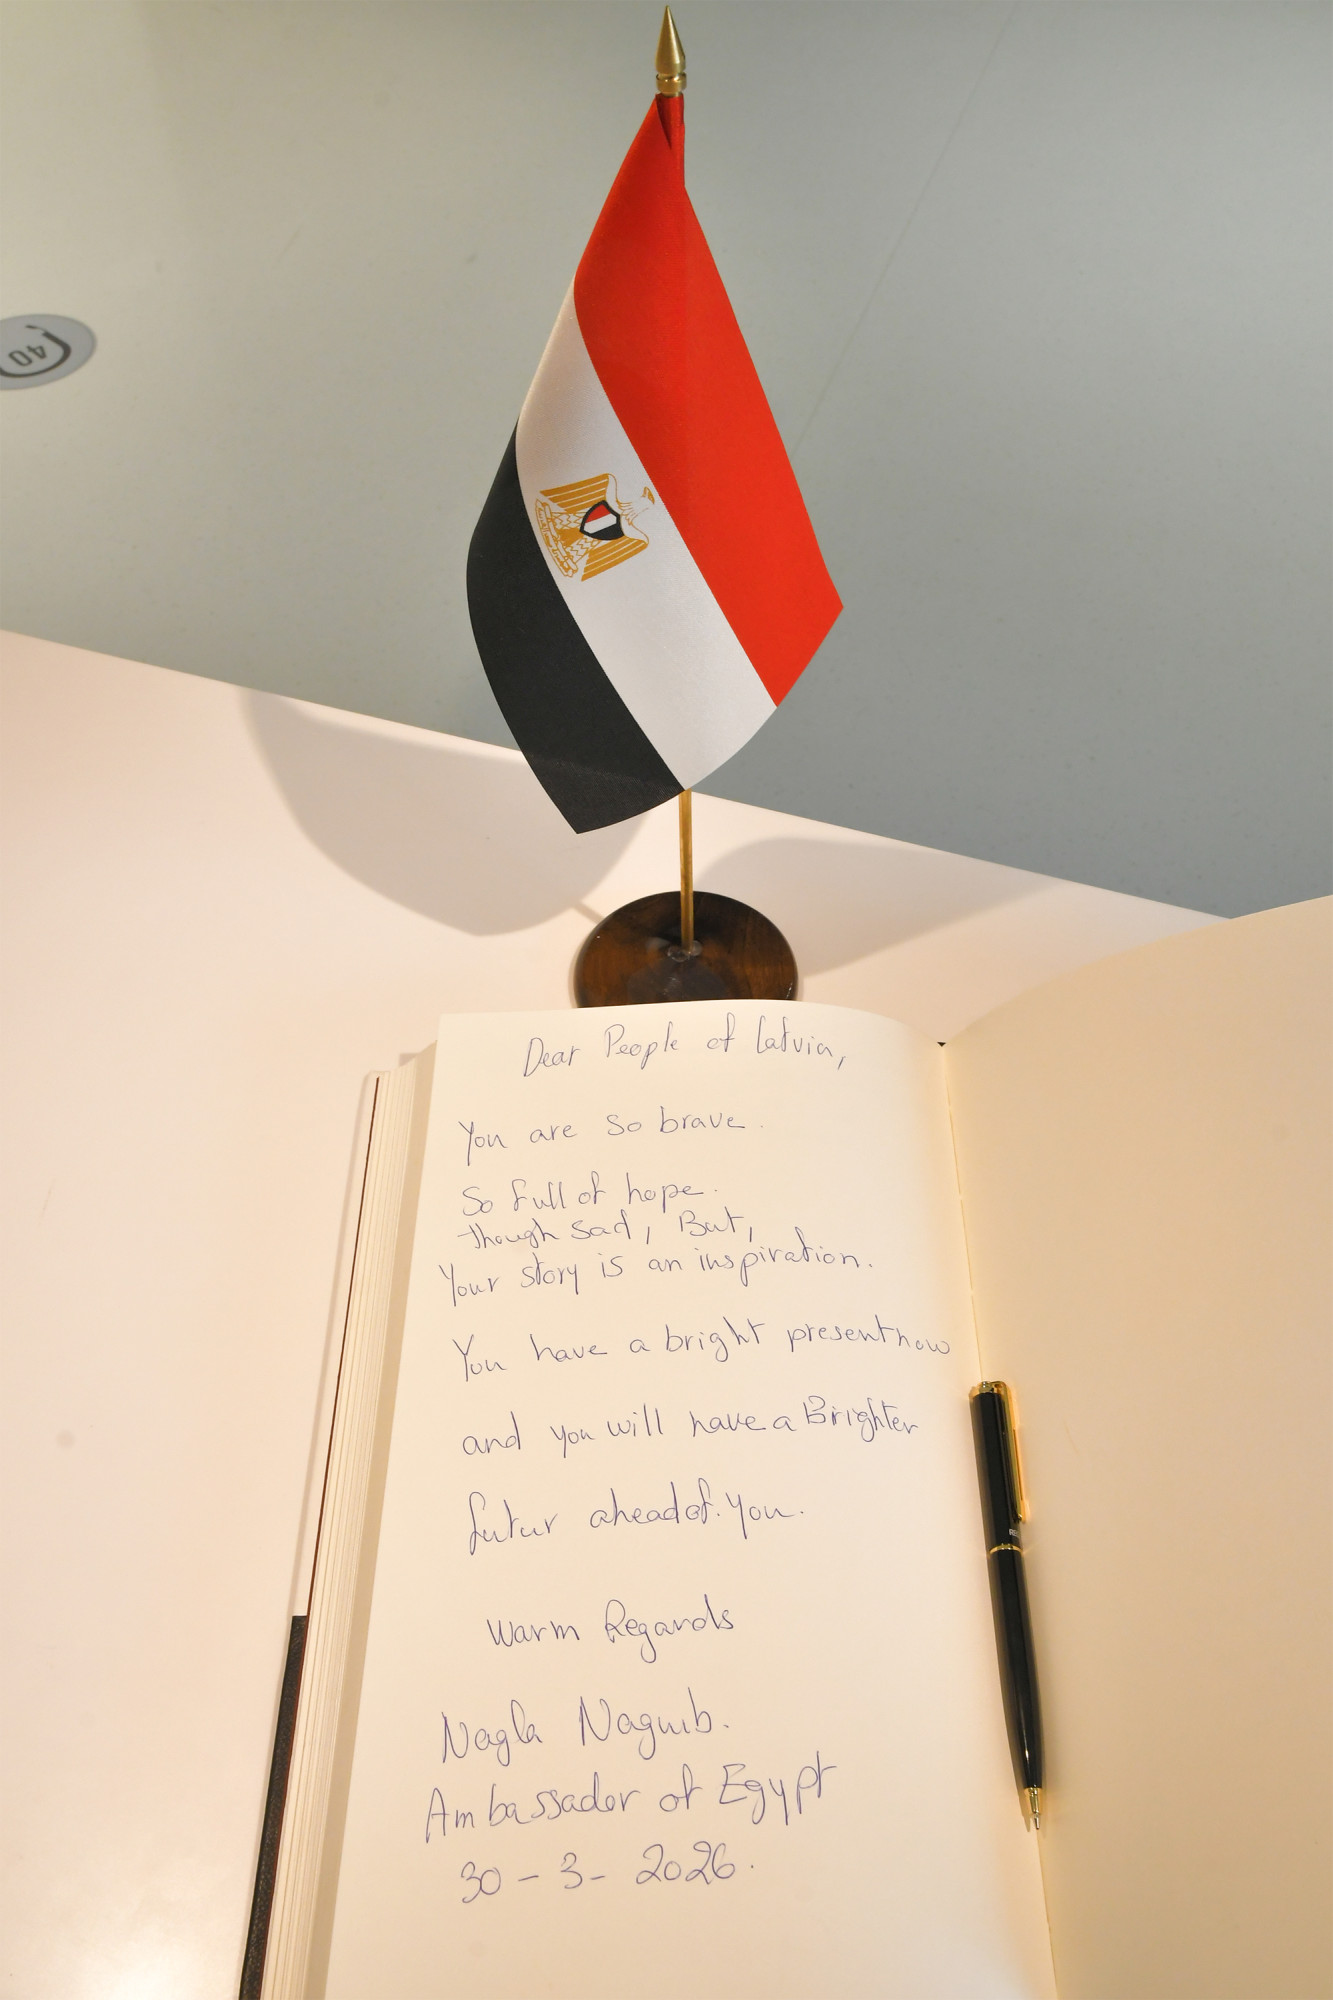 40
Dear People of Latvia,
You are so brave.
So full of hope.
though sad, But,
Your story is an inspiration.
You have a bright present now
and you will have a Brighter
futur ahead of. You.
Warm Regards
Nagla Naguib.
Ambassador of Egypt
30 - 3 - 2026.